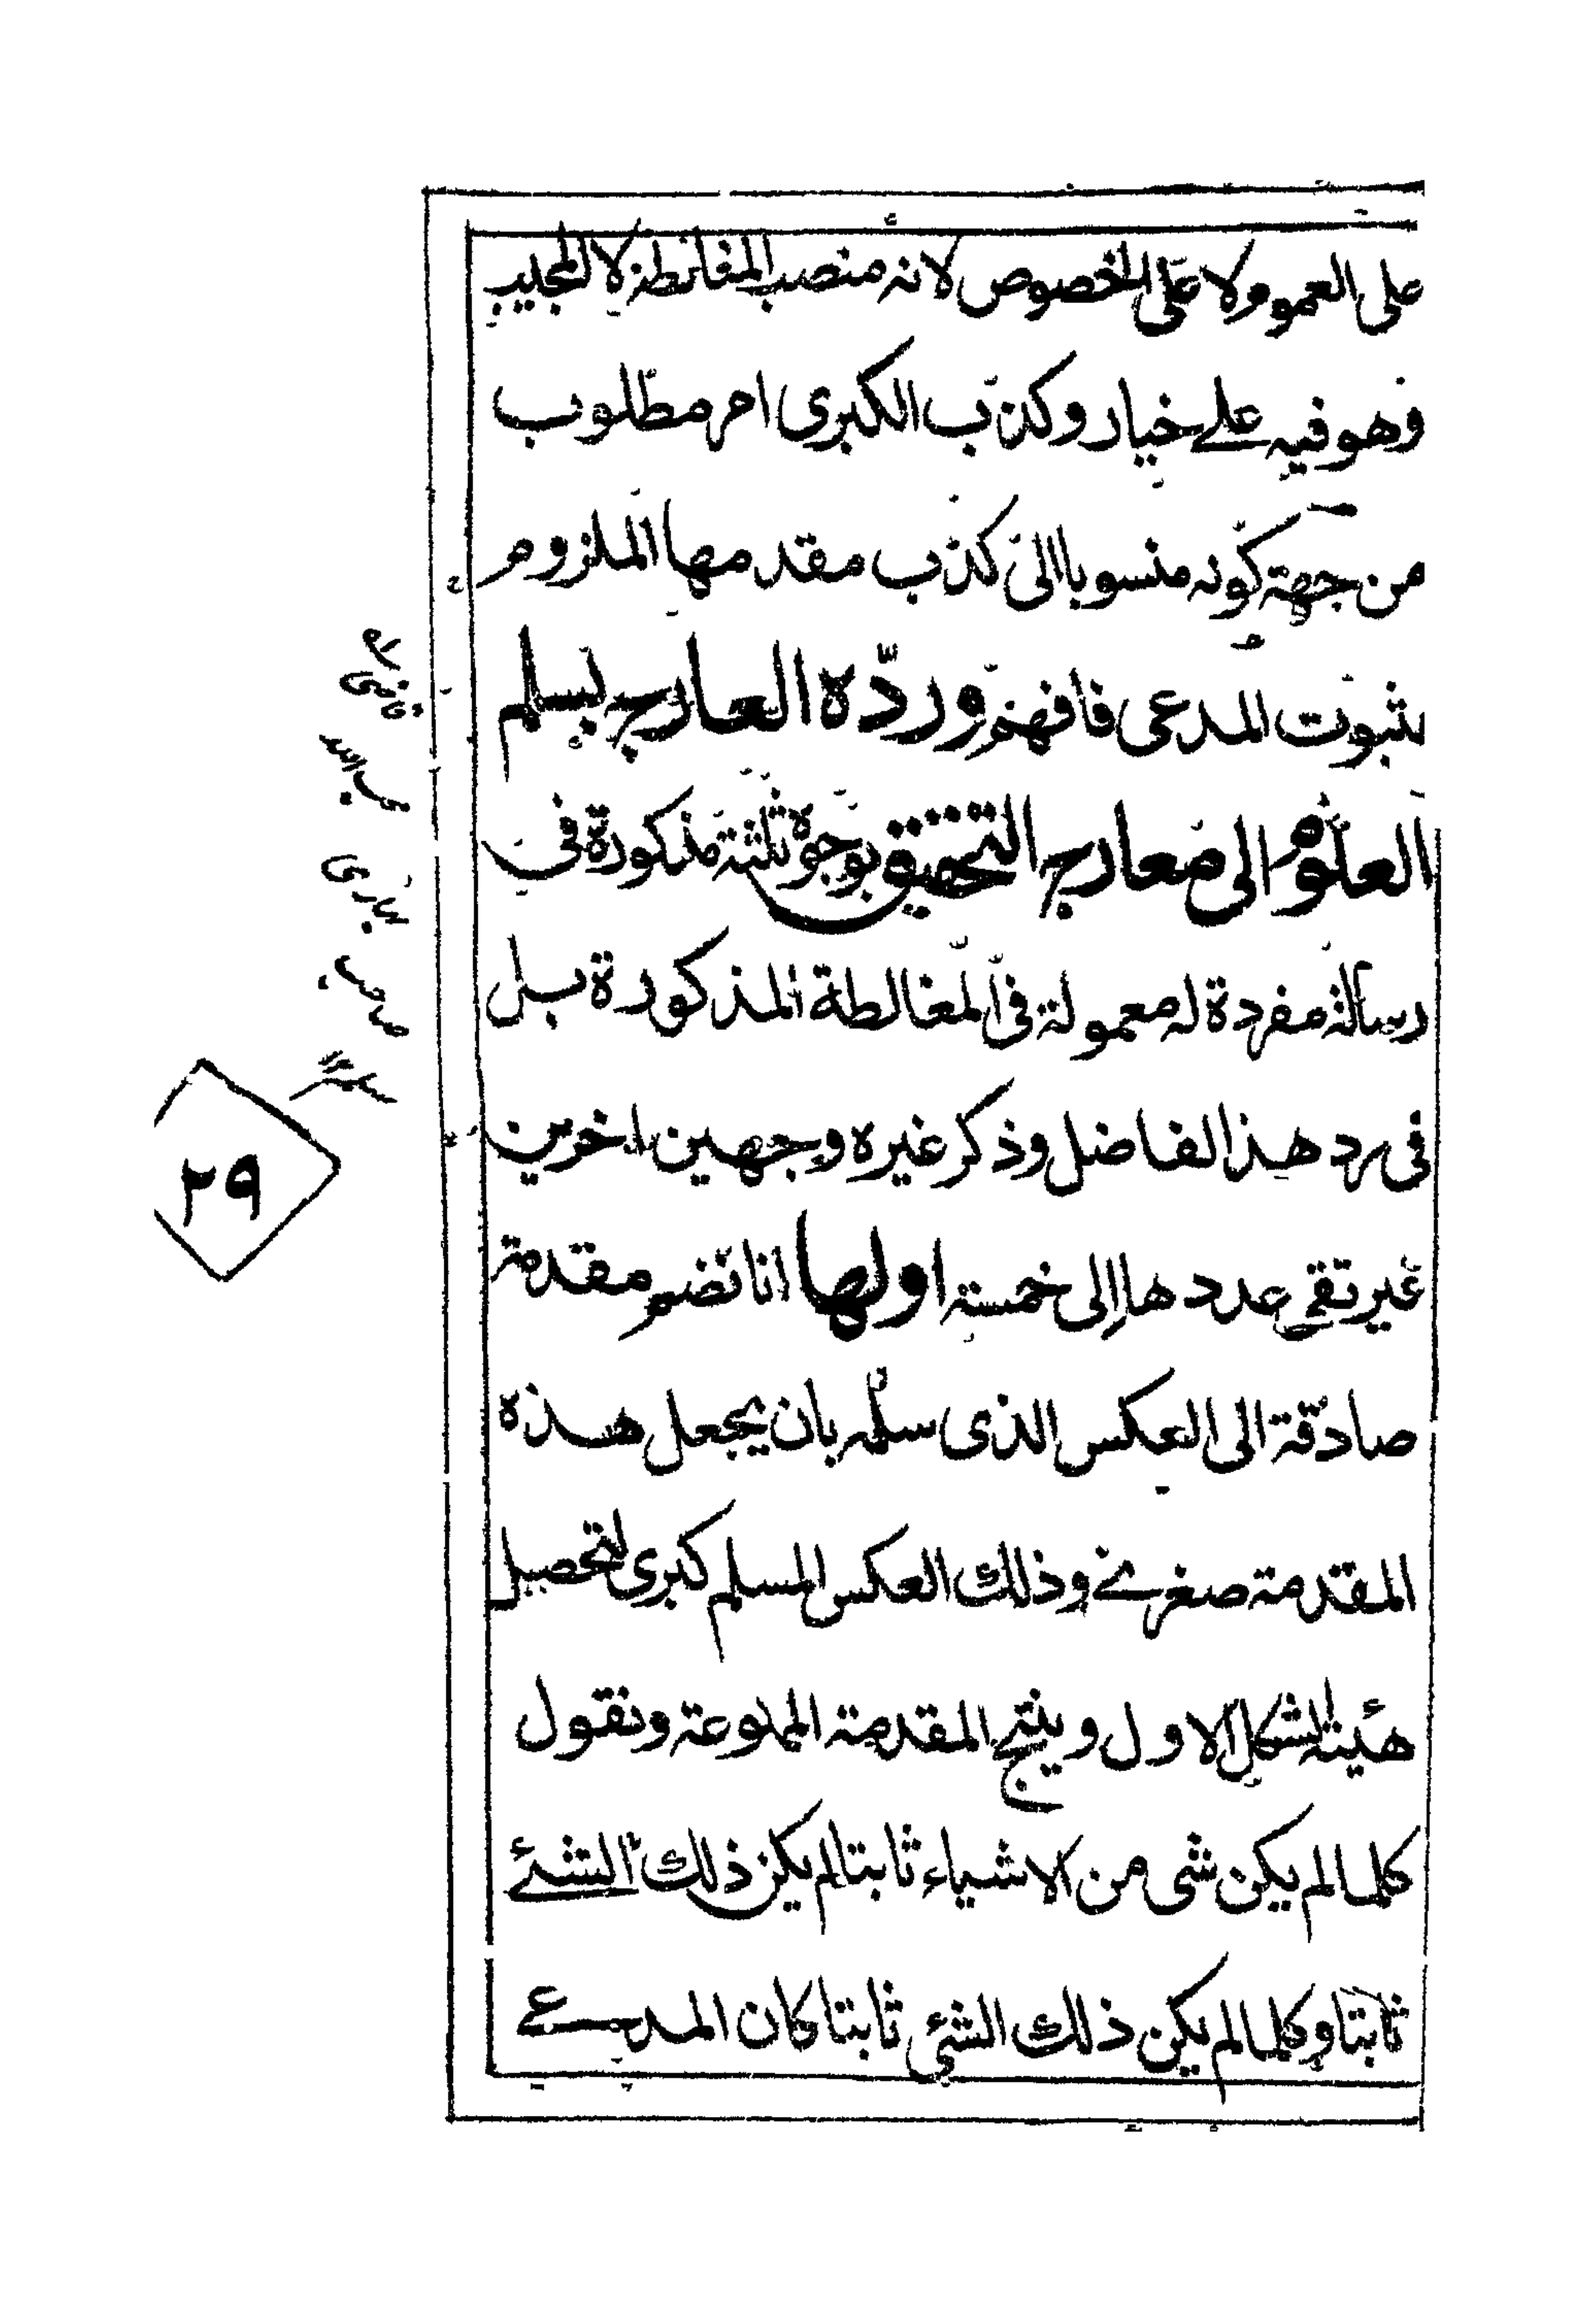 على العموم ولا على الخصوص لانه منصب المغالطة لا المجيب
وهو فيه على خيار وكذب الكبرى امر مطلوب
من جهة كونه منسوبا الى كذب مقدمها الملزوم
بثبوت المدعى فافهم وردّه العارج بسلم
العلوم الى معارج التحقيق بوجوه ثلثة مذكورة في
رسالة مفردة له معمولة فى المغالطة المذكورة بل
فى رد هذا الفاضل وذكر غيره وجهين اخرين
غير تقى عددها الى خمسة اولها انا نضم مقدمة
صادقة الى العكس الذى سلمه بان يجعل هذه
المقدمة صغرى وذلك العكس المسلم كبرى لتحصيل
هيئة الشكل الاول وينتج المقدمة الممنوعة ونقول
كلما لم يكن شى من الاشياء ثابتا لم يكن ذلك الشئ
ثابتا وكلما لم يكن ذلك الشئ ثابتا كان المدعى
قاضى
محب الله
بهارى
صاحب
٢٩